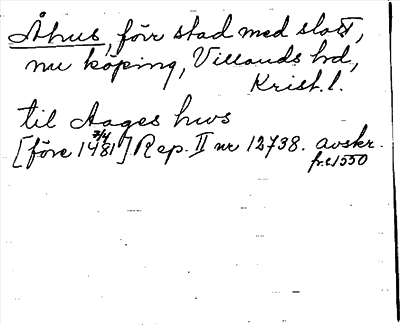 Åhus, förr stad med slott,
nu köping, Villands hd,
Krist. l.
til Aages hws
[före 7/4 1481] Rep. II nr 12738. avskr.
fr. c. 1550